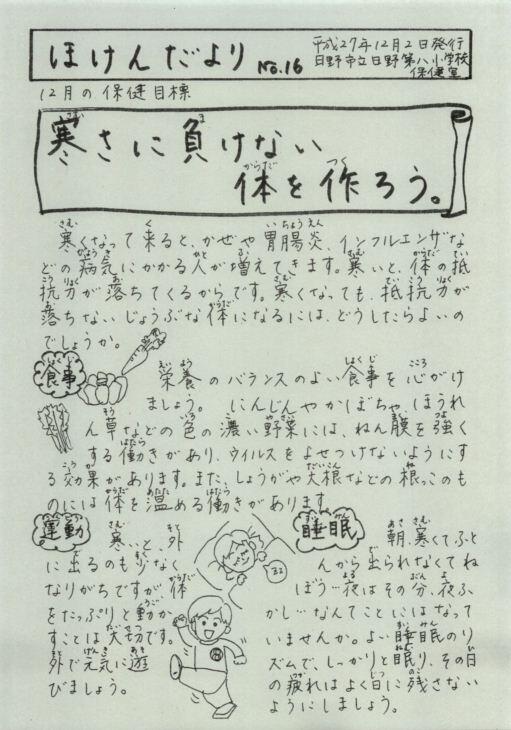 ほけんだより No.16
平成27年12月2日発行
日野市立日野第八小学校
保健室
12月の保健目標
寒さに負けない
体を作ろう。
寒くなって来ると、かぜや胃腸炎、インフルエンザな
どの病気にかかる人が増えてきます。寒いと、体の抵
抗力が落ちてくるからです。寒くなっても、抵抗力が
落ちないじょうぶな体になるには、どうしたらよいの
でしょうか。
食事
栄養のバランスのよい食事を心がけ
ましょう。にんじんやかぼちゃ、ほうれ
ん草などの色の濃い野菜には、ねん膜を強く
する働きがあり、ウイルスをよせつけないようにす
る効果があります。また、しょうがや大根などの根っこのも
のには体を温める働きがあります。
運動
寒いと、外
に出るのも少なく
なりがちですが、体
をたっぷりと動か
すことは大切です。
外で元気に遊
びましょう。
睡眠
朝、寒くてふと
んから出られなくてね
ぼう…夜はその分、夜ふ
かし…なんてことにはなって
いませんか。よい睡眠のリ
ズムで、しっかりと眠り、その日
の疲れはよく日に残さない
ようにしましょう。